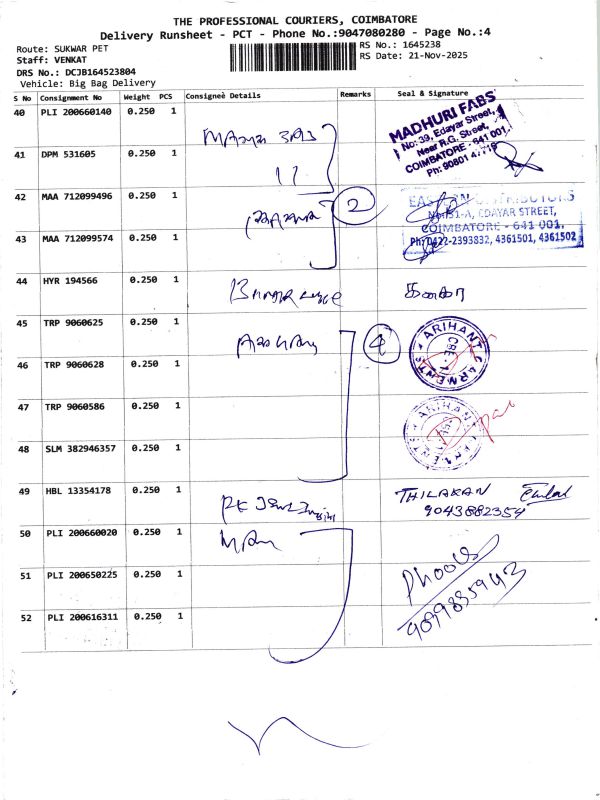 THE PROFESSIONAL COURIERS, COIMBATORE
Delivery Runsheet - PCT - Phone No.:9047080280 - Page No.:4
Route: SUKWAR PET
RS No.: 1645238
Staff: VENKAT
RS Date: 21-Nov-2025
DRS No.: DCJB164523804
Vehicle: Big Bag Delivery
S No Consignment No Weight PCS Consignee Details Remarks Seal & Signature
40 PLI 200660140 0.250 1
MADHURI FABS
No: 39, Edayar Street,
Near R.G. Street,
COIMBATORE - 641 001.
Ph: 90801
41 DPM 531605 0.250 1
11
42 MAA 712099496 0.250 1
2
EASTERN DISTRIBUTORS
EDAYAR STREET,
COIMBATORE - 641 001.
Ph: 0422-2393832, 4361501, 4361502
43 MAA 712099574 0.250 1
44 HYR 194566 0.250 1
45 TRP 9060625 0.250 1
4
ARIHANT GARMENTS
CBE-1
46 TRP 9060628 0.250 1
47 TRP 9060586 0.250 1
ARIHANT GARMENTS
48 SLM 382946357 0.250 1
49 HBL 13354178 0.250 1 THILAKAN
9043882354
50 PLI 200660020 0.250 1
51 PLI 200650225 0.250 1
9099885943
52 PLI 200616311 0.250 1